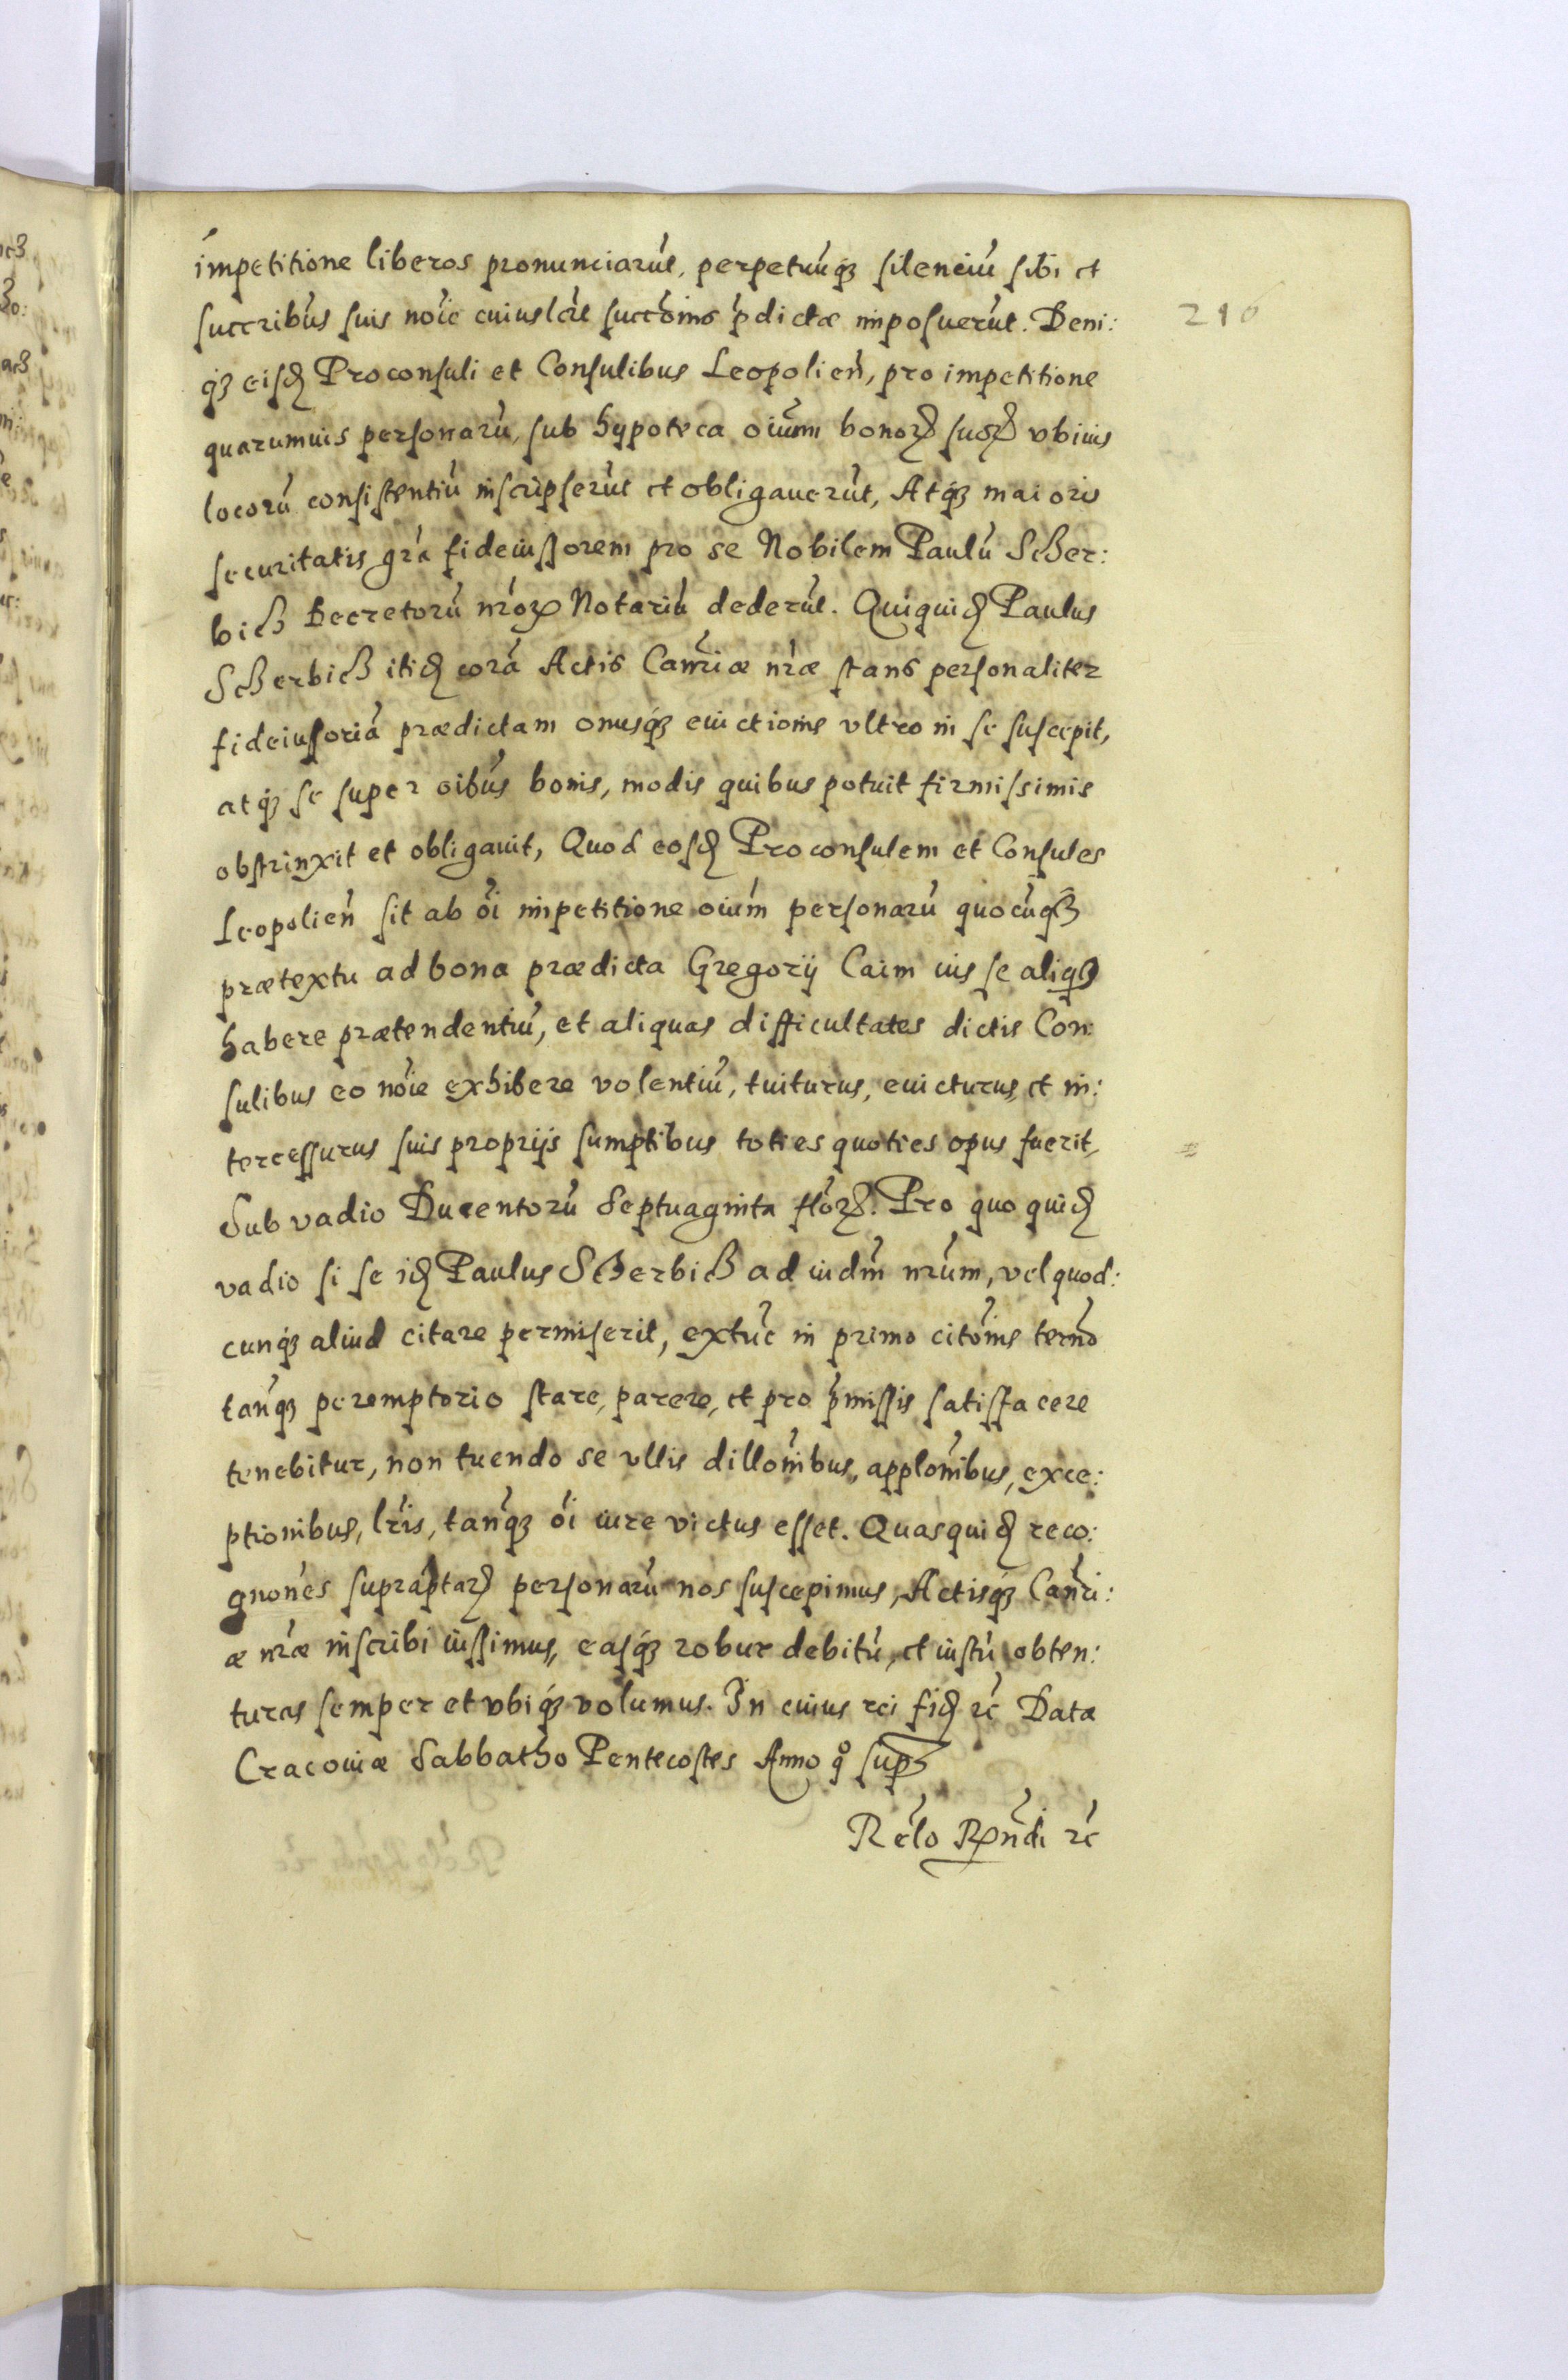 impetitione liberos pronunciarũt, perpetuũqꝫ silenciũ sibi et
succribus suis noĩe cuiuslibt succõnis p̃dictæ imposuerũt. Deni:
210
qꝫ eisdꝫ Proconsuli et Consulibus Leopolień, pro impetitione
quarumuis personarũ, sub hypoteca oiũm bonoꝝ suoꝝ vbiuis
locorũ consistentiũ inscripserũt et obligauerũt, Atqꝫ maioris
securitatis grã fideiussorem pro se Nobilem Paulũ Scher:
bich Decretorũ nr̃oꝝ Notariũ dederũt. Quiquidꝫ Paulus
Scherbich itidꝫ corã Actis Canc̃riæ nr̃æ stans personaliter
fideiussoriã prædictam onusqꝫ euictionis vltro in se suscepit,
atqꝫ se super oĩbus bonis, modis quibus potuit firmissimis
obstrinxit et obligauit, Quod eosdꝫ Proconsulem et Consules
Leopolień sit ab oĩ impetitione oiũm personarũ quocũqꝫ
prætextu ad bona prædicta Gregorij Caim ius se aliqꝫ
habere prætendentiũ, et aliquas difficultates dictis Con:
sulibus eo noĩe exhibere volentiũ, tuiturus, euicturus, et in:
tercessurus suis proprijs sumptibus toties quoties opus fuerit,
Sub vadio Ducentorũ Septuaginta flõꝝ. Pro quo quidꝫ
vadio si se idꝫ Paulus Scherbich ad iudm̃ nr̃um, vel quod:
cunqꝫ aliud citare permiserit, extũc in primo citõnis term̃o
tanq̃ꝫ peremptorio stare, parere, et pro p̃missis satisfacere
tenebitur, non tuendo se vllis dillõnibus, applõnibus, exce:
ptionibus, lr̃is, tanq̃ꝫ oĩ iure victus esset. Quasquidꝫ reco:
gnões supraptaꝝ personarũ nos suscepimus, Actisqꝫ Canc̃ri:
æ nr̃æ inscribi iussimus, easqꝫ robur debitũ, et iustũ obten:
turas semper et vbiqꝫ volumus. In cuius rei fidꝫ ꝛc̃ Datæ
Cracouiæ Sabbatho Pentecostes Anno qͦ supꝫ
Rel̃o Rꝑñdi ꝛc̃